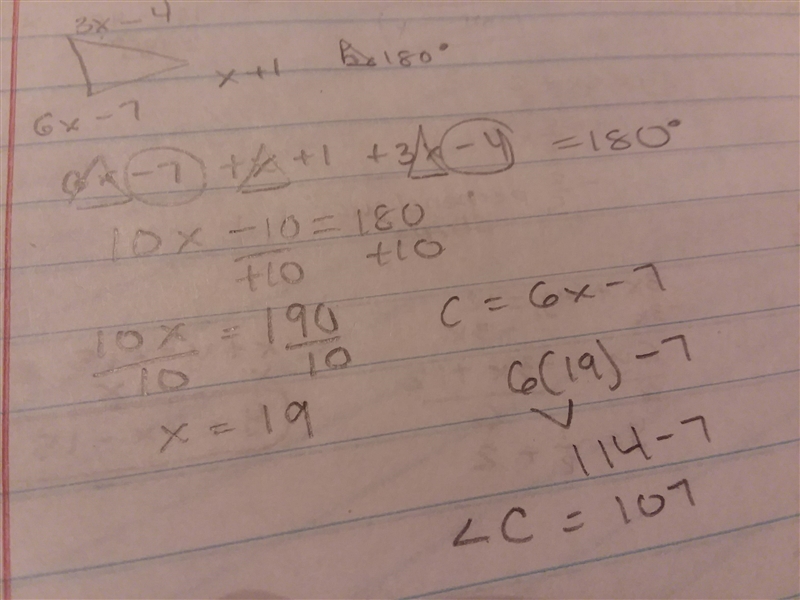 3x - 4
x + 1
180°
6x - 7
6x - 7 + x + 1 + 3x - 4 = 180°
10x - 10 = 180
+10 +10
10x = 190
10 10
x = 19
C = 6x - 7
6(19) - 7
114 - 7
∠C = 107